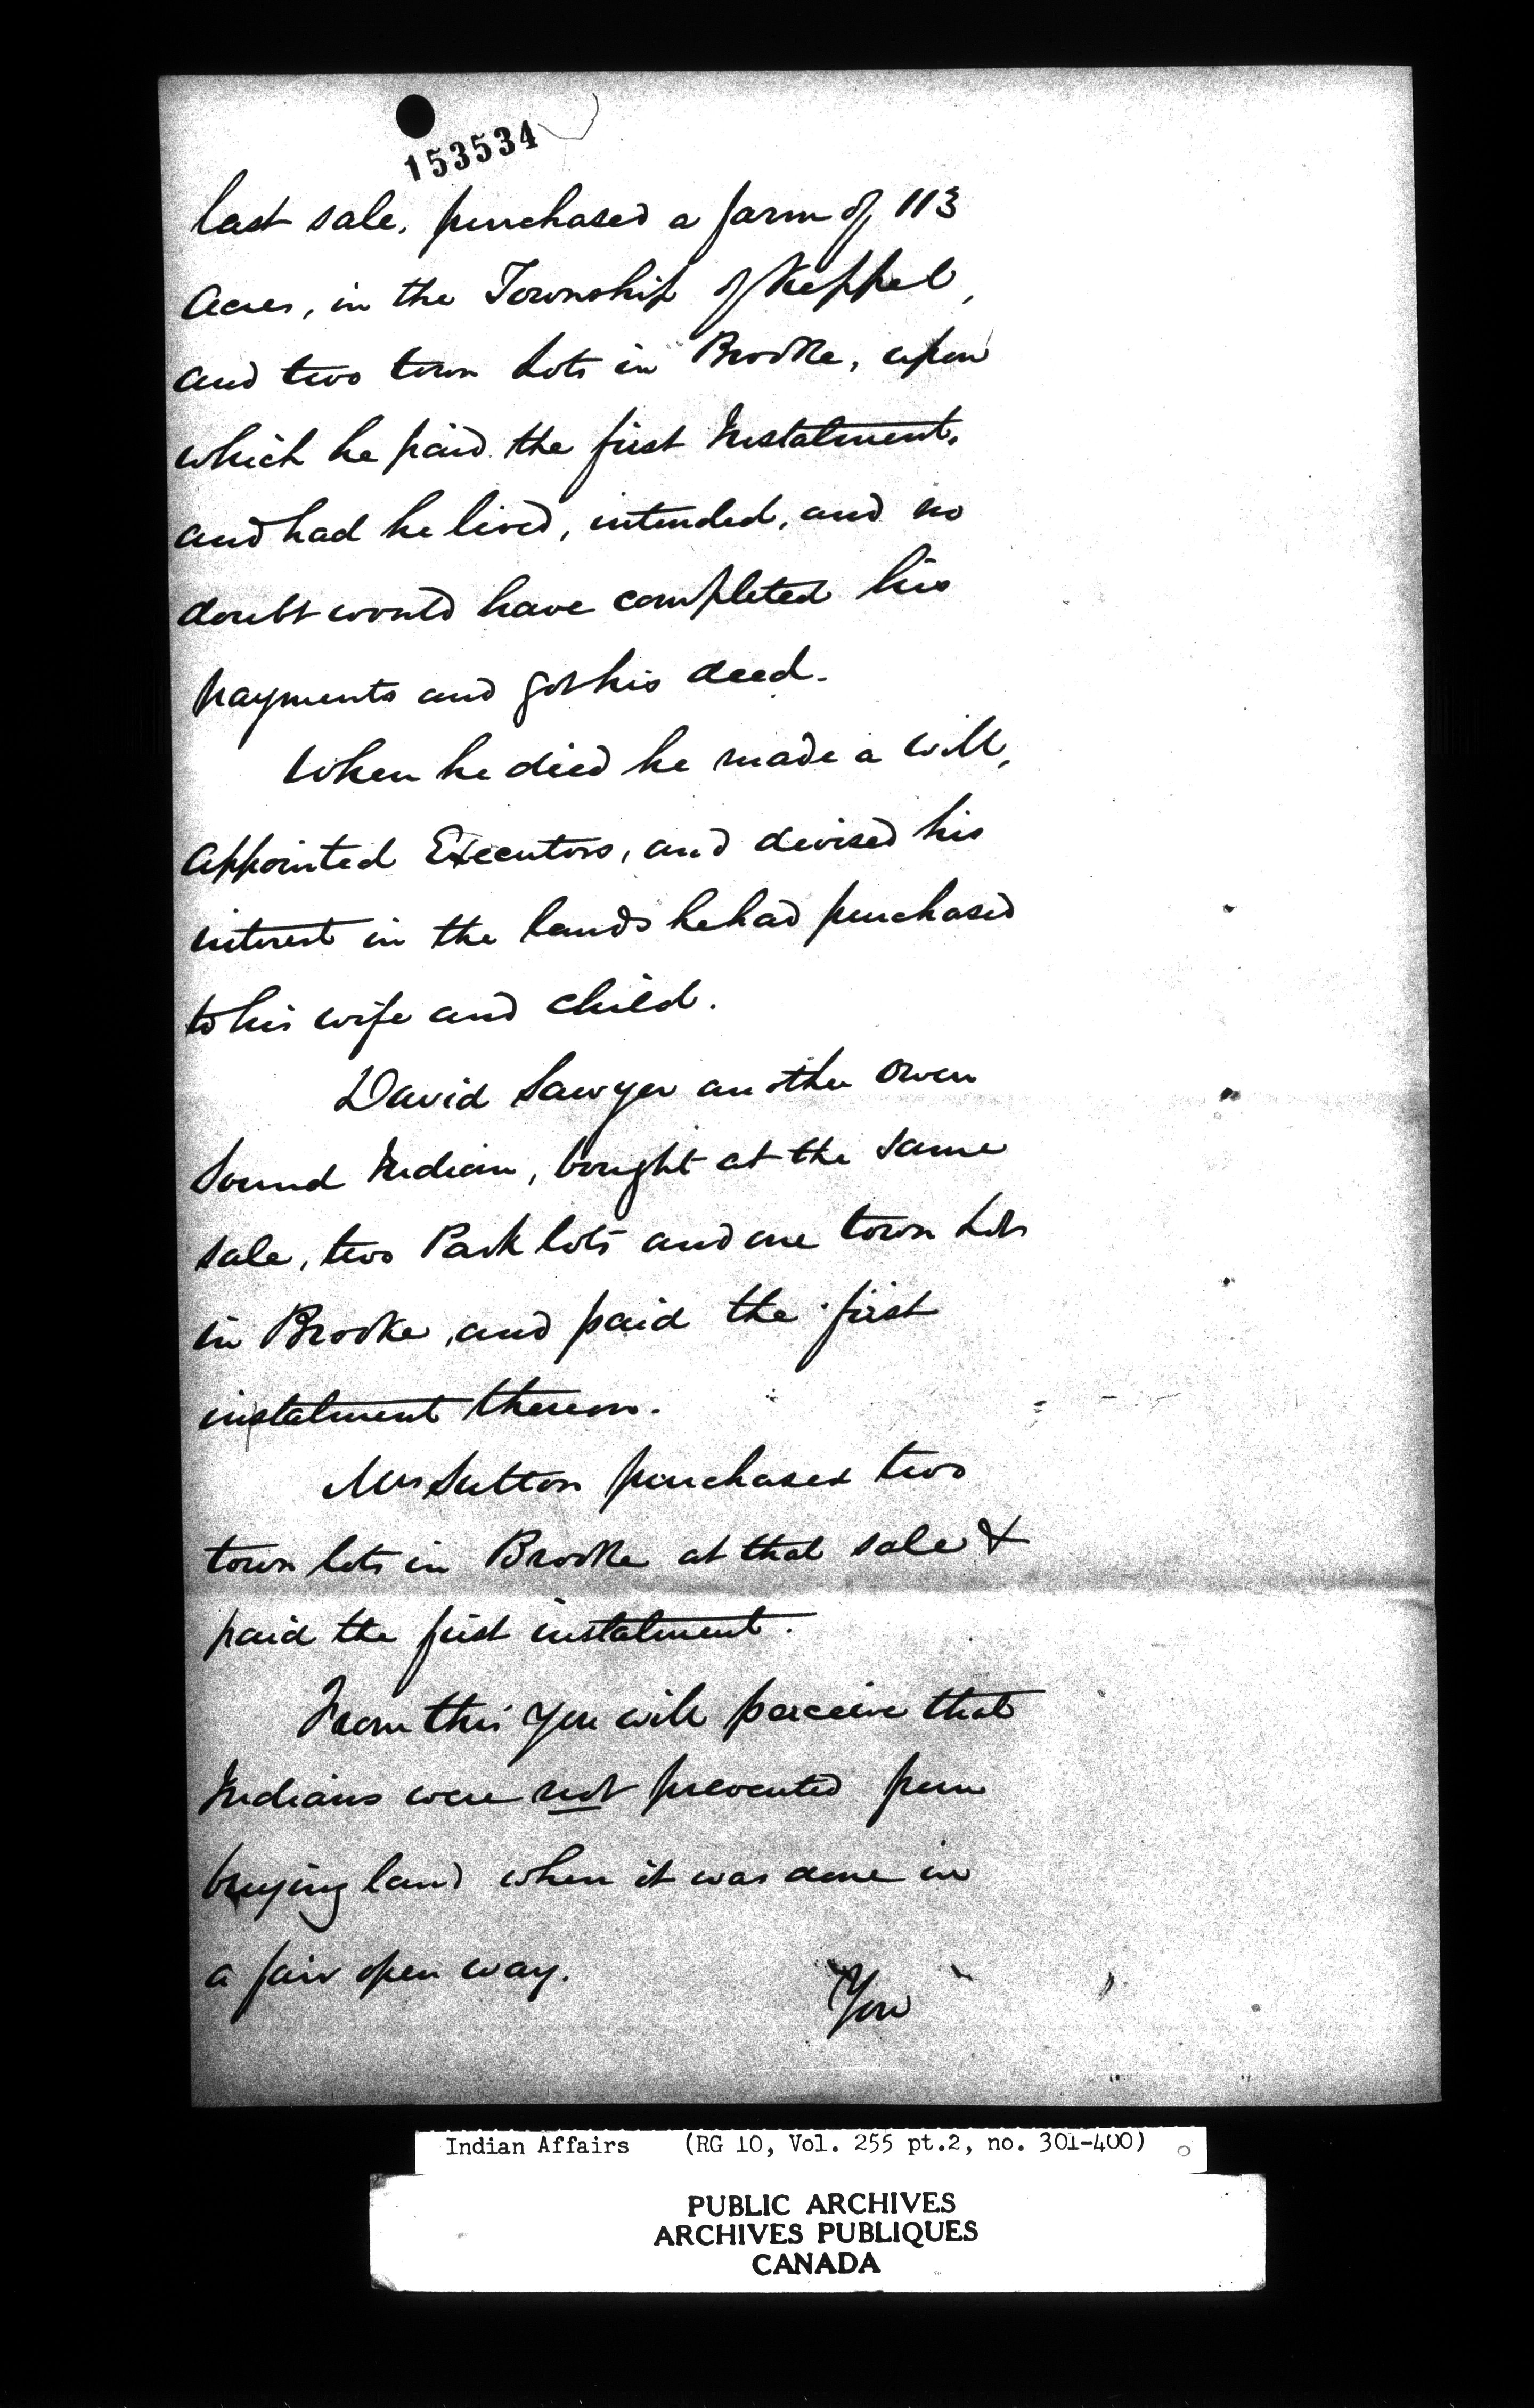 153534
last sale, purchased a farm of 113
Acres, in the Township of Keppel,
and two town Lots in Brooke, upon
which he paid the first Instalment,
and had he lived, intended, and no
doubt would have completed his
payments and got his deed.
When he died he made a will,
appointed Executors, and devised his
interest in the lands he had purchased
to his wife and child.
David Sawyer another Owen
Sound Indian, bought at the same
sale, two Park lots and one town Lot
in Brooke, and paid the first
instalment thereon.
Mrs Sutton purchased two
town lots in Brooke at that sale &
paid the first instalment.
From this you will perceive that
Indians were not prevented from
buying land when it was done in
a fair open way.
You
Indian Affairs (RG 10, Vol. 255 pt.2, no. 301-400)
PUBLIC ARCHIVES
ARCHIVES PUBLIQUES
CANADA